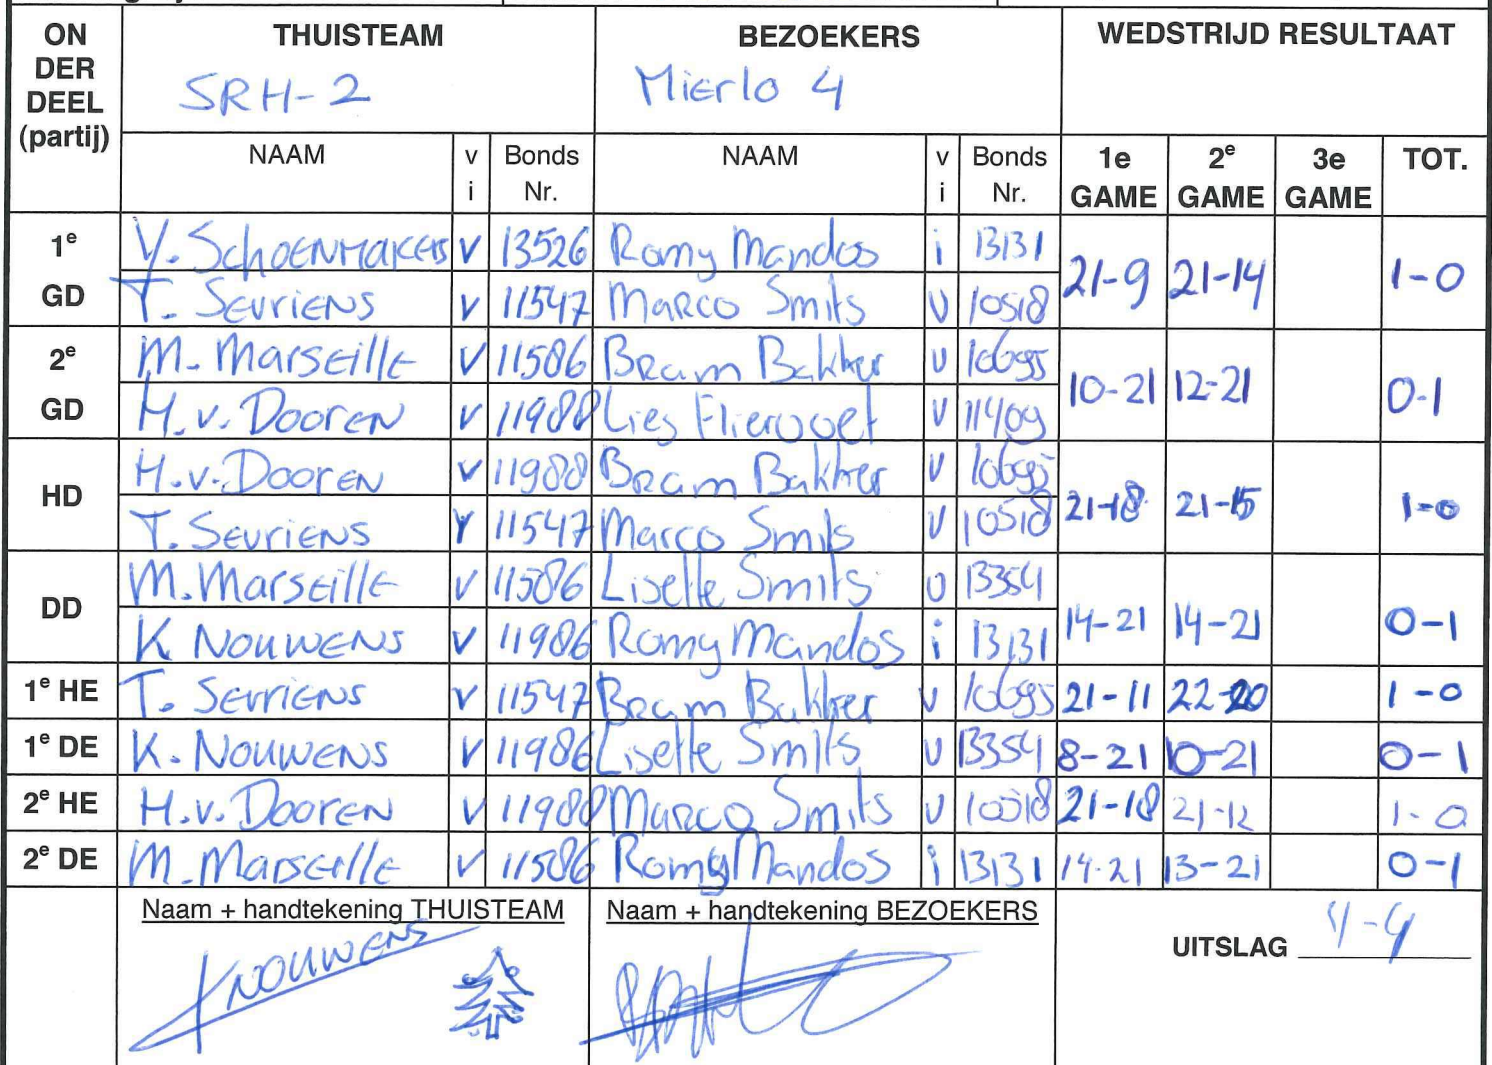 ON DER DEEL (partij) THUISTEAM BEZOEKERS WEDSTRIJD RESULTAAT
SRH-2 Mierlo 4
NAAM v i Bonds Nr. NAAM v i Bonds Nr. 1e GAME 2e GAME 3e GAME TOT.
1e GD V. SchoENMAKERS v 13526 Romy Mandos i 13131 21-9 21-14 1-0
T. SEVRIENS v 11547 Marco Smits v 10518
2e GD M. MARSEILLE v 11586 Bram Bakker v 10695 10-21 12-21 0-1
H.v. DoorEN v 11988 Lies Fliervoet v 11409
HD H.v. DoorEN v 11988 Bram Bakker v 10695 21-18 21-15 1-0
T. SEVRIENS v 11547 Marco Smits v 10518
DD M. MARSEILLE v 11586 Liselle Smits v 13354 14-21 14-21 0-1
K NOUWENS v 11986 Romy Mandos i 13131
1e HE T. SEVRIENS v 11547 Bram Bakker v 10695 21-11 22-20 1-0
1e DE K. NOUWENS v 11986 Liselle Smits v 13354 8-21 10-21 0-1
2e HE H.v. DoorEN v 11988 Marco Smits v 10518 21-18 21-12 1-0
2e DE M. MARSEILLE v 11586 Romy Mandos i 13131 14-21 13-21 0-1
Naam + handtekening THUISTEAM Naam + handtekening BEZOEKERS
KNOUWENS UITSLAG 4-4